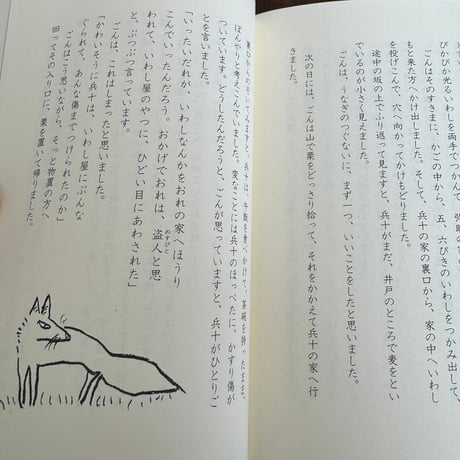 ぴかぴか光るいわしを両手でつかんで、弥助の
ごんはそのすきまに、かごの中から、五、六ぴきのいわしをつかみ出して、
もと来た方へかけ出しました。そして、兵十の家の裏口から、家の中へいわし
を投げこんで、穴へ向かってかけもどりました。
途中の坂の上でふり返って見ますと、兵十がまだ、井戸のところで麦をとい
でいるのが小さく見えました。
ごんは、うなぎのつぐないに、まず一つ、いいことをしたと思いました。
次の日には、ごんは山で栗をどっさり拾って、それをかかえて兵十の家へ行
きました。
裏口からのぞいてみますと、兵十は、午飯を食べかけて、茶碗を持ったまま、
ぼんやりと考えこんでいました。変なことには兵十のほっぺたに、かすり傷が
ついています。どうしたんだろうと、ごんが思っていますと、兵十がひとりご
とを言いました。
「いったいだれが、いわしなんかをおれの家へほうり
こんでいったんだろう。おかげでおれは、盗人と思
われて、いわし屋のやつに、ひどい目にあわされた」
と、ぶつぶつ言っています。
ごんは、これはしまったと思いました。
「かわいそうに兵十は、いわし屋にぶんな
ぐられて、あんな傷までつけられたのか」
ごんはこう思いながら、そっと物置の方へ
回ってその入り口に、栗を置いて帰りました。